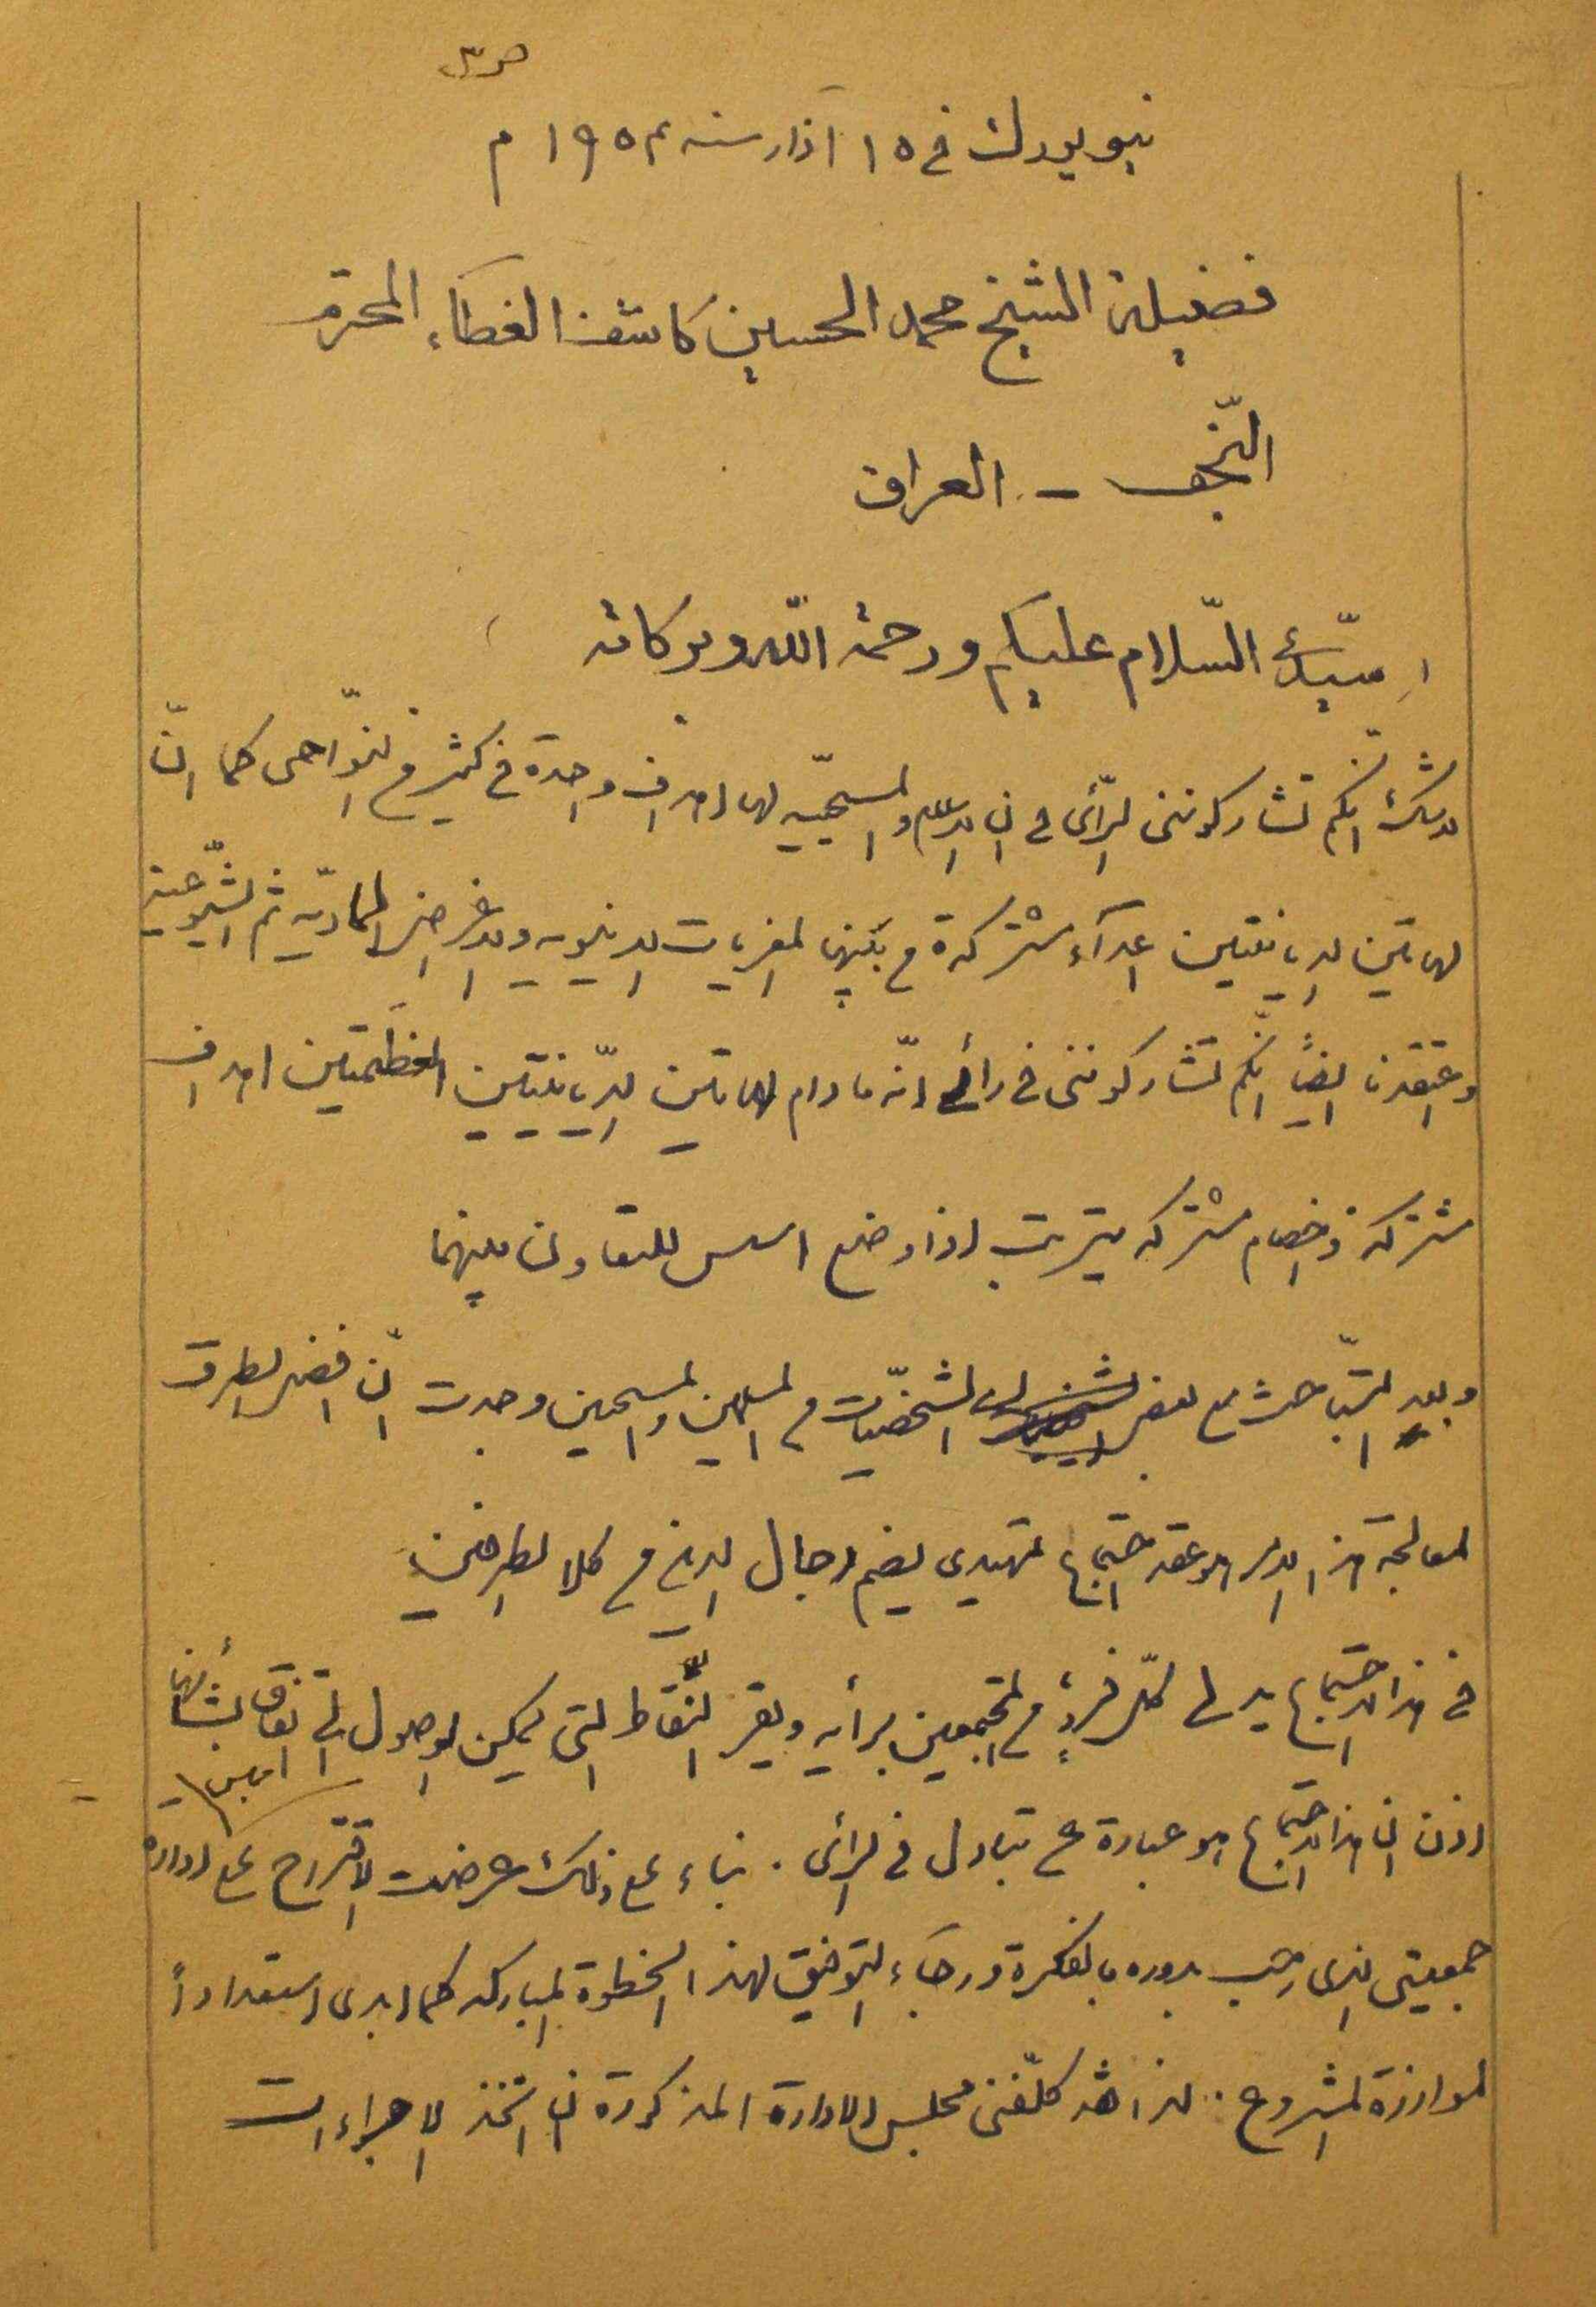 ص ٣
نيويورك في ١٥ آذار سنه ١٩٥٤ م
فضيلة الشيخ محمد الحسين كاشف الغطاء المحترم
النّجف - العراق
سيّدي السّلام عليكم ورحمة الله وبركاته
لا شك انّكم تشاركونني الرّأي في ان الاسلام والمسيحيّه لها اهداف واحدة في كثير من النّواحى كما انّ
لهاتين الديانتين اعدآء مشتركة من بينها المغريات الدنيويه والاغراض الماديّه ثم الشّيوعية
وعتقدنا ايضاً انّكم تشاركونني في رأى انّه ما دام لهاتين الدّيانتين العظَيمتين اهداف
مشتركة وخصام مشتركه يترتب اذا وضع اسس للتعاون بينهما
وبعد التّباحث مع بعض الشخصّيات من المسلمين والمسيحين وجدت انّ افضل الطرق
لمعالجة هذا الامر هو عقد اجتماع تمهيدى يضم رجال الدين من كلا الطرفين
في هذا الاجتماع يدلى كلّ فردٍ من المجتمعين برأيه ويقرّ النّقاط التى يمكن الوصول الى اتفاق بشأنها
اذن ان هذا الاجتماع هو عبارة عن تبادل في الرأى . بناء على ذلك عرضت الاقتراح على ادارة
جمعيتى الذى رحب بدوره بالفكرة ورجاء التوفيق لهذا الخطوة المباركه كما ابدى استعداداً
لموازرة المشروع . لذا فقد كلّفنى مجلس الادارة المذكورة ان اتخذ الاجراءات